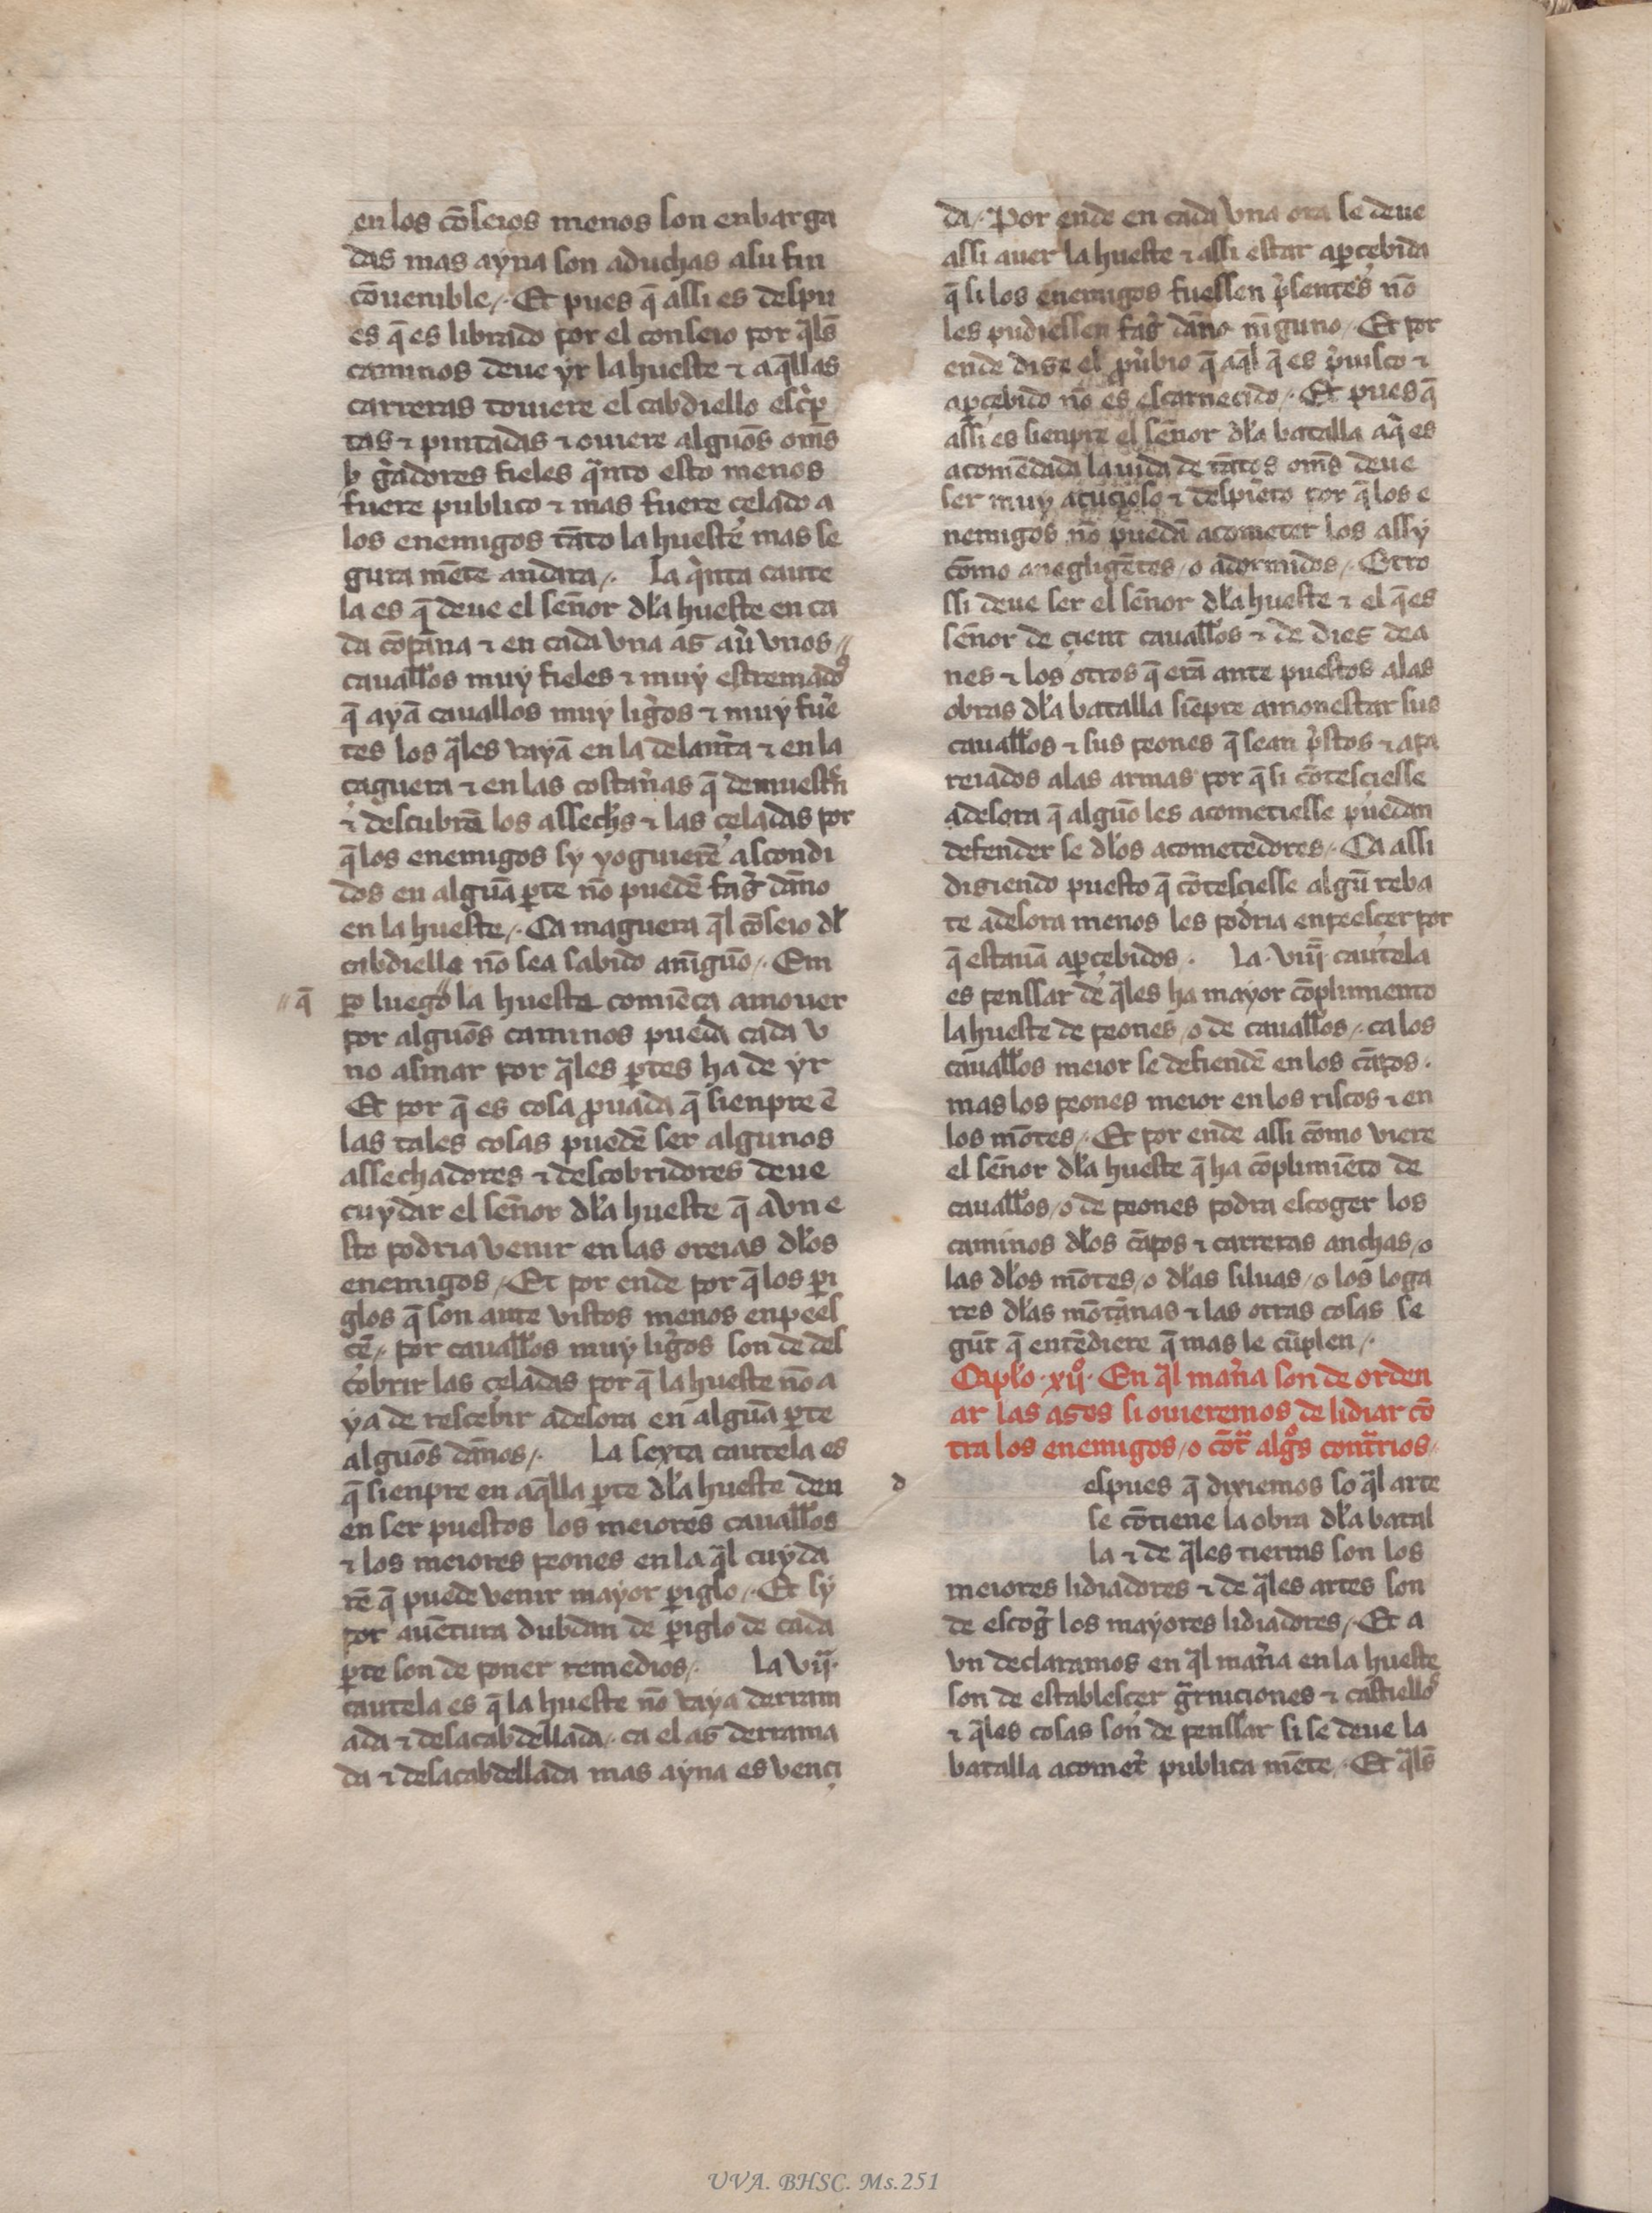 en los cõseios menos son enbarga
das mas ayna son aduchas a su fin
cõuenible /. Et pues q̃ assi es despu
es q̃ es librado por el conseio por q̃ls̃
caminos deue yr la hueste ⁊ aq̃llas
carreras touiere el cabdiello esc̉p
tas ⁊ pintadas ⁊ ouiere alguõs om̃s
b g̃adores fieles q̃nto esto menos
fuere publico ⁊ mas fuere çelado a
los enemigos tãto la hueste mas se
gura mẽte andara /. La q̉nta caute
la es q̃ deue el señor dl̃a hueste en ca
da cõpãna ⁊ en cada vna as aủ vnos //
cauall̃os muy fieles ⁊ muy estremados
q̃ ayã cauallos muy lig̉os ⁊ muy fuẻ
tes los q̃les vayã en la delant̉a ⁊ en la
çaguera ⁊ en las costan̉as q̃ demuestrẽ
⁊ descubrã los assechos ⁊ las çeladas por
q̃ los enemigos sy yoguierẽ ascondi
dos en alguã p̱te nõ puedẽ faz̉ dãno
en la hueste /. Ca maguera q̃l cõseio dl̃
cabdiello nõ sea sabido a nĩguõ /. Em
p̱o luego // la hueste comiẽça a mouer
// q̃
por alguõs caminos pueda cada v
no asmar por q̃les p̱tes ha de yr
Et por q̃ es cosa ꝓuada q̃ sienpre ẽ
las tales cosas puedẽ ser algunos
assechadores ⁊ descobridores deue
cuydar el señor dl̃a hueste q̃ avn e
sto podria venir en las oreias dl̃os
enemigos /. Et por ende por q̃ los p̱i
glos q̃ son ante vistos menos enpees
çẽ /. por cauall̃os muy lig̉os son de des
cobrir las çeladas por q̃ la hueste nõ a
ya de resçebir adesora en alguã p̱te
alguõs dãnos /. La sexta cautela es
q̃ sienpre en aq̃lla p̱te dl̃a hueste deu
en ser puestos los meiores cauall̃os
⁊ los meiores peones en la q̃l cuyda
rẽ q̃ puede venir mayor p̱iglo /. Et sy
por auẽtura dubdan de p̱iglo de cada
p̱te son de poner remedios /. La vij.
cautela es q̃ la hueste nõ vaya derram
ada ⁊ desacabdellada /. ca el as derrama
da ⁊ desacabdellada mas ayna es vençi
da /. Por ende en cada vna ora se deue
assi auer la hueste ⁊ assi estar ap̱çebida
q̃ si los enemigos fuessen p̉sentes nõ
les pudiessen faz̉ dãno nĩguno /. Et por
ende dize el ꝓủbio q̃ aq̃l q̃ es p̉uisto ⁊
ap̱çebido nõ es escarneçido /. Et pues q̃
assi es sienpre el señor dl̃a batalla a q̉ es
acomẽdada la vida de tãtos om̃s deue
ser muy acuçioso ⁊ despierto por q̃ los e
nemigos nõ puedã acometer los assy
cõmo a negligẽtes / o adormidos /. Otro
ssi deue ser el señor dl̃a hueste ⁊ el q̃ es
señor de çient cauall̃os ⁊ de diez dea
nes ⁊ los otros q̃ erã ante puestos a las
obras dl̃a batalla siẽpre amonestar sus
cauall̃os ⁊ sus peones q̃ sean p̉stos ⁊ apa
reiados a las armas por q̃ si cõtesçiesse
adesora q̃ alguõ les acometiesse puedan
defender se dl̃os acometedores /. Ca assi
diziendo puesto q̃ cõtesçiesse algũ reba
te adesora menos les podria enpeesçer por
q̃ estauã ap̱çebidos . La . viij̃ cautela
es penssar de q̃les ha mayor cõplimiento
la hueste de peones / o de cauall̃os /. ca los
cauall̃os meior se defiendẽ en los cãpos .
mas los peones meior en los riscos ⁊ en
los mõtes /. Et por ende assi cõmo viere
el señor dl̃a hueste q̃ ha cõplimiẽto de
cauall̃os / o de peones podra escoger los
caminos dl̃os cãpos ⁊ carreras anchas / o
las dl̃os mõtes / o dl̃as siluas / o los loga
res dl̃as mõtãnas ⁊ las otras cosas se
gũt q̃ entẽdiere q̃ mas le cũplen /.
Capl̃o . xijº . En q̃l man̉a son de orden
ar las azes si ouieremos de lidiar cõ
tra los enemigos / o cõt̃ algºs cont̃rios /
d
espues q̃ dixiemos so q̃l arte
se cõtiene la obra dl̃a batal
la ⁊ de q̃les tierras son los
meiores lidiadores ⁊ de q̃les artes son
de escog̉ los mayores lidiadores /. Et a
vn declaramos en q̃l man̉a en la hueste
son de establesçer g̃rniciones ⁊ castiellos
⁊ q̃les cosas son de penssar si se deue la
batalla acomet̉ publica mẽte /. Et q̃ls̃
UVA. BHSC. Ms.251